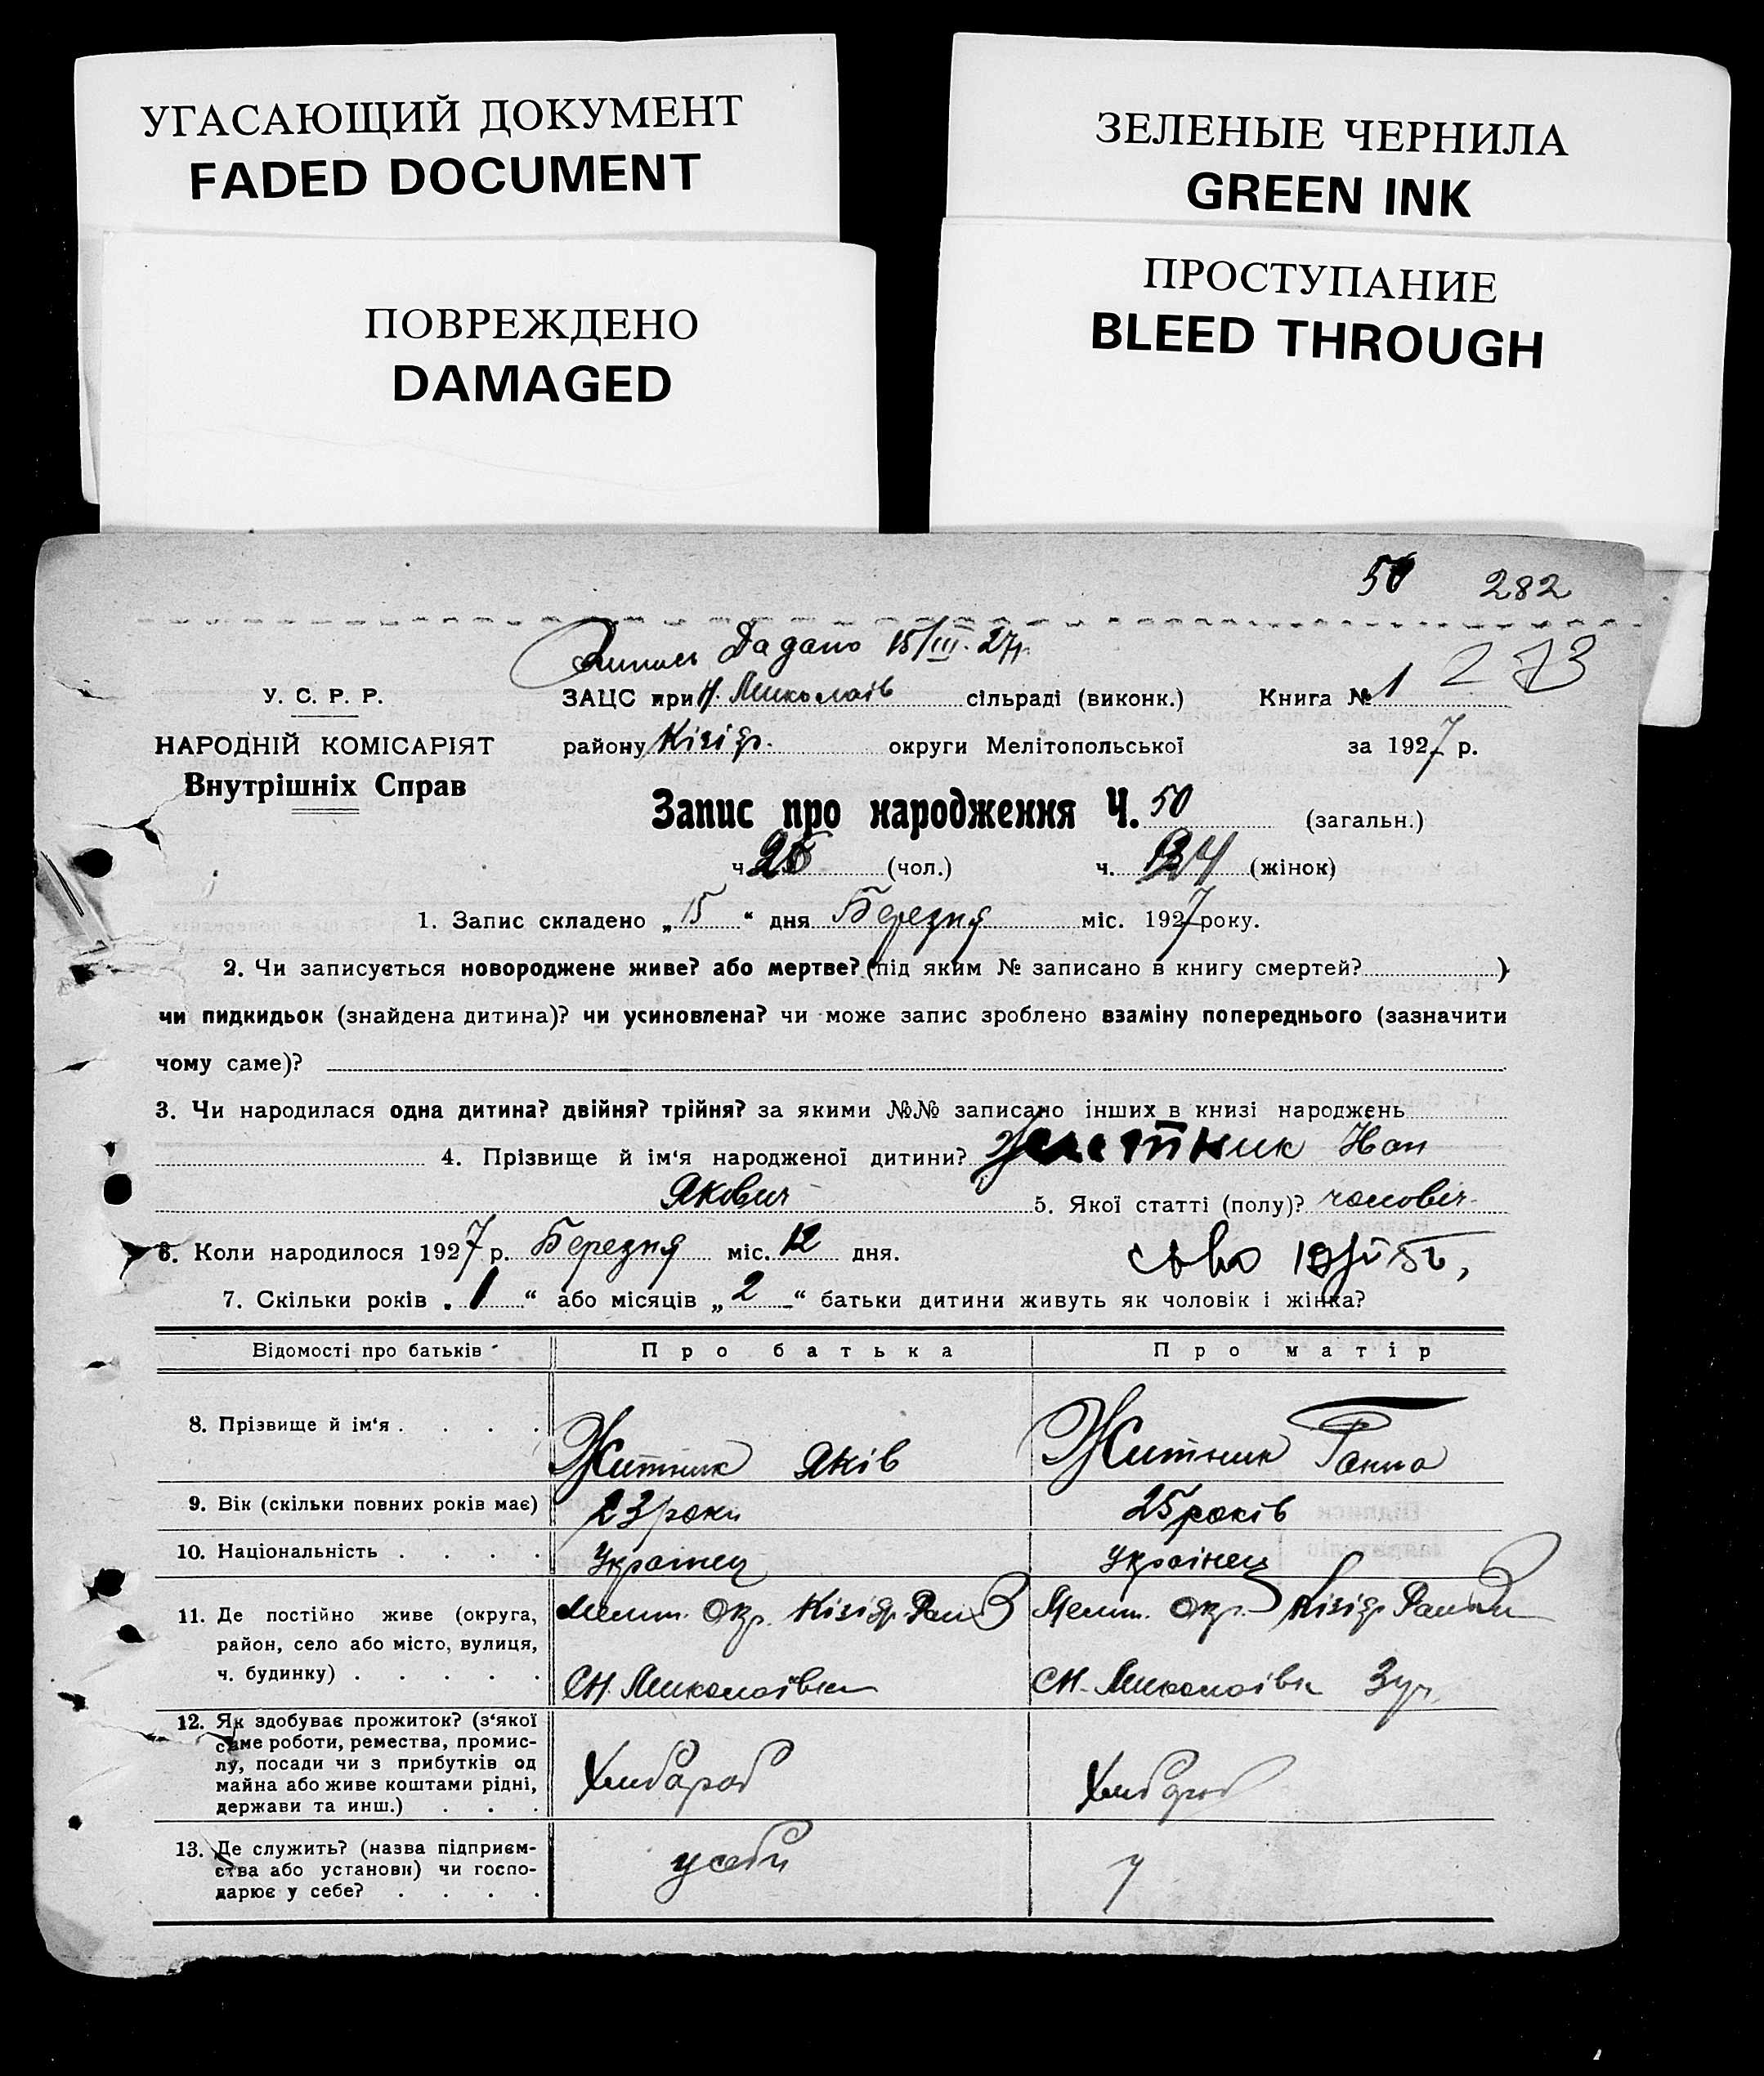 УГАСАЮЩИЙ ДОКУМЕНТ
FADED DOCUMENT
ЗЕЛЕНЫЕ ЧЕРНИЛА
GREEN INK
ПОВРЕЖДЕНО
DAMAGED
ПРОСТУПАНИЕ
BLEED THROUGH
50 282
15/III. 27р.
273
У. С. Р. Р.
ЗАЦС при Н. Миколаїв сільраді (виконк.) Книга № 1
НАРОДНІЙ КОМІСАРІЯТ
району Кізіяр. округи Мелітопольської за 1927 р.
Внутрішніх Справ
Запис про народження Ч. 50 (загальн.)
ч. 26 (чол.) ч. 24 (жінок)
1. Запис складено „15“ дня Березня міс. 1927 року.
2. Чи записується новороджене живе? або мертве? (під яким № записано в книгу смертей? )
чи пидкидьок (знайдена дитина)? чи усиновлена? чи може запис зроблено взаміну попереднього (зазначити
чому саме)?
3. Чи народилася одна дитина? двійня? трійня? за якими №№ записано інших в книзі народжень
4. Прізвище й ім‘я народженої дитини? Житник Іван
Якович 5. Якої статті (полу)? чоловіч
6. Коли народилося 1927 р. Березня міс. 12 дня.
7. Скільки років „1“ або місяців „2“ батьки дитини живуть як чоловік і жінка?
Відомості про батьків Про батька Про матір
8. Прізвище й ім‘я . . . . Житник Яків Житник Ганна
9. Вік (скільки повних років має) 23 роки 25 років
10. Національність . . . . Українец Українец
11. Де постійно живе (округа, район, село або місто, вулиця, ч. будинку) . . . . .
Мелит. Окр. Кізіяр. Мелит. Окр. Кізіяр.
СН. Миколаївка СН. Миколаївка
12. Як здобуває прожиток? (з‘якої саме роботи, ремества, промислу, посади чи з прибутків од майна або живе коштами рідні, держави та инш.) . . .
Хлібороб Хлібороб
13. Де служить? (назва підприємства або установи) чи господарює у себе? . . . .
у себи у